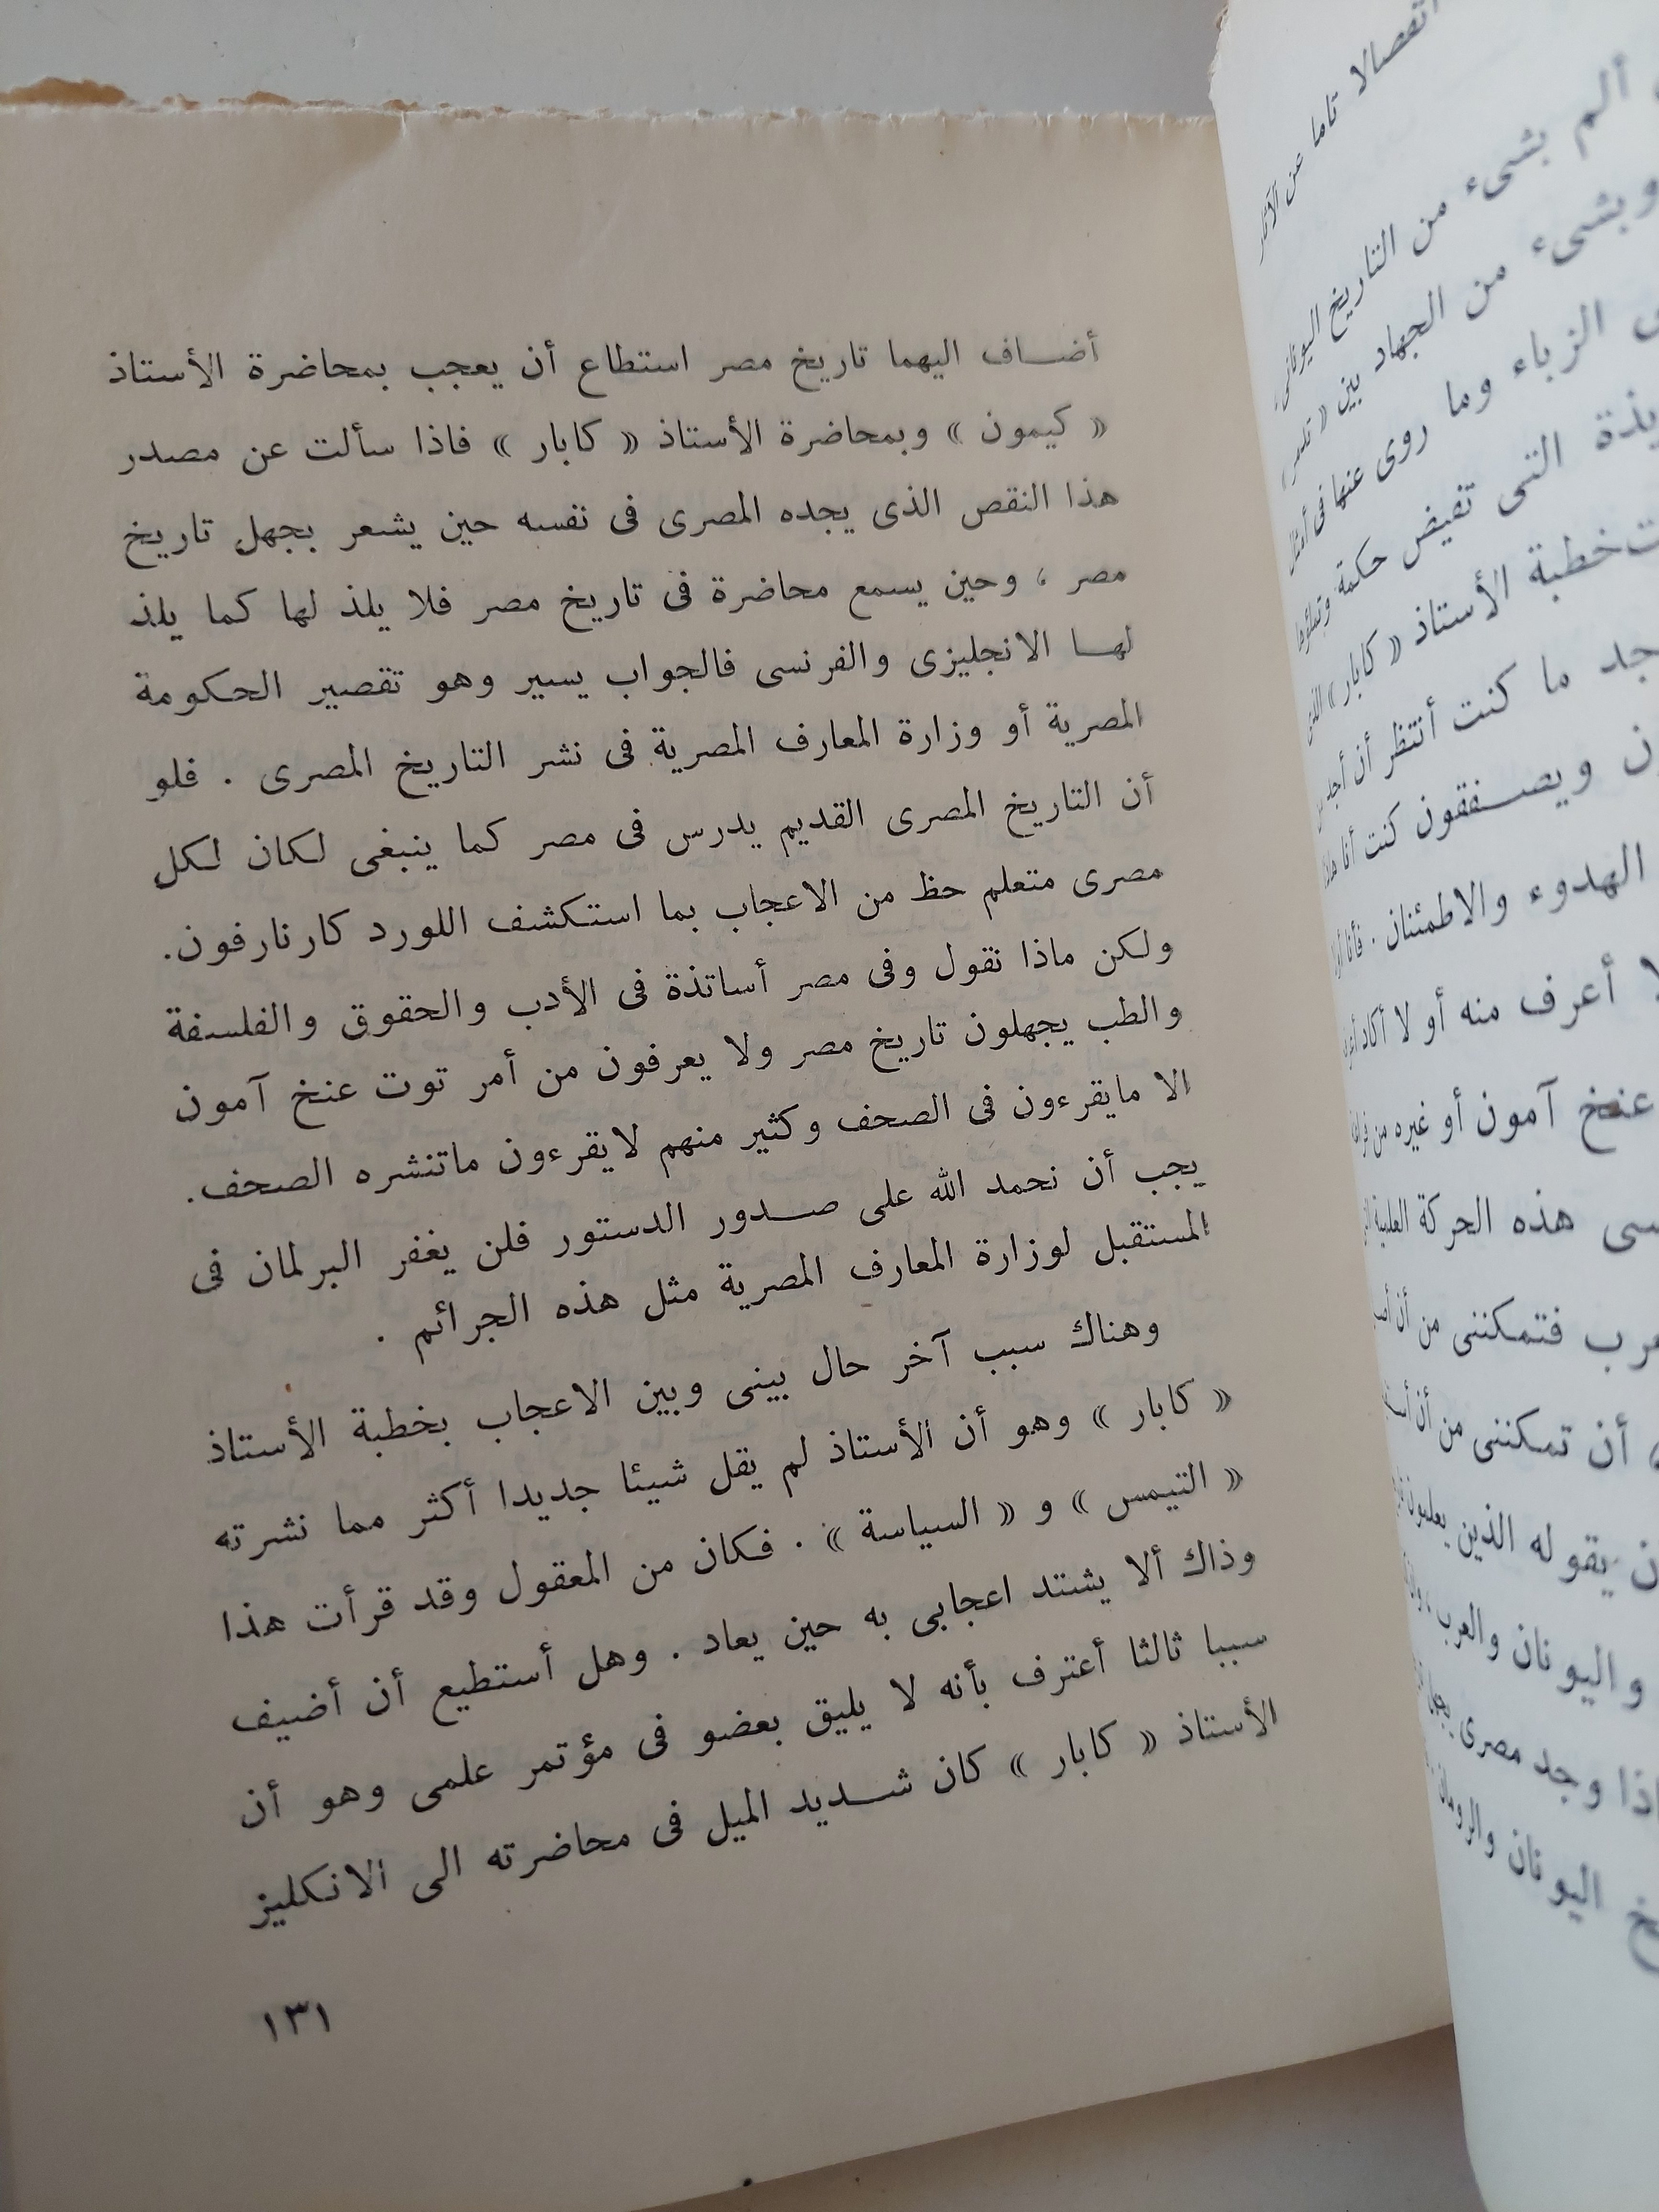 أضاف اليهما تاريخ مصر استطاع أن يعجب بمحاضرة الأستاذ
« كيمون » وبمحاضرة الأستاذ « كابار » فاذا سألت عن مصدر
هذا النقص الذى يجده المصرى فى نفسه حين يشعر بجهل تاريخ
مصر ، وحين يسمع محاضرة فى تاريخ مصر فلا يلذ لها كما يلذ
لها الانجليزى والفرنسى فالجواب يسير وهو تقصير الحكومة
المصرية أو وزارة المعارف المصرية فى نشر التاريخ المصرى . فلو
أن التاريخ المصرى القديم يدرس فى مصر كما ينبغى لكان لكل
مصرى متعلم حظ من الاعجاب بما استكشف اللورد كارنارفون.
ولكن ماذا نقول وفى مصر أساتذة فى الأدب والحقوق والفلسفة
والطب يجهلون تاريخ مصر ولا يعرفون من أمر توت عنخ آمون
الا مايقرءون فى الصحف وكثير منهم لايقرءون ماتنشره الصحف.
يجب أن نحمد الله على صدور الدستور فلن يغفر البرلمان فى
المستقبل لوزارة المعارف المصرية مثل هذه الجرائم .
وهناك سبب آخر حال بينى وبين الاعجاب بخطبة الأستاذ
« كابار » وهو أن الأستاذ لم يقل شيئا جديدا أكثر مما نشرته
« التيمس » و « السياسة » . فكان من المعقول وقد قرأت هذا
وذاك ألا يشتد اعجابى به حين يعاد . وهل أستطيع أن أضيف
سببا ثالثا أعترف بأنه لا يليق بعضو فى مؤتمر علمى وهو أن
الأستاذ « كابار » كان شديد الميل فى محاضرته الى الانكليز
١٣١
انفصالا تاما عن الآثار
ألم بشىء من التاريخ اليونانى
وبشىء من الجهاد بين « تدمر »
الزباء وما روى عنها فى أمثال
التى تفيض حكمة
خطبة الأستاذ « كابار »
ما كنت أنتظر أن أجد
ويصفقون كنت أنا هادئا
الهدوء والاطمئنان .
أعرف منه أو لا أكاد
عنخ آمون أو غيره من
هذه الحركة العلمية
فتمكننى من أن
أن تمكننى من أن
يقوله الذين يعلمون
واليونان والعرب
وجد مصرى
اليونان والرومان